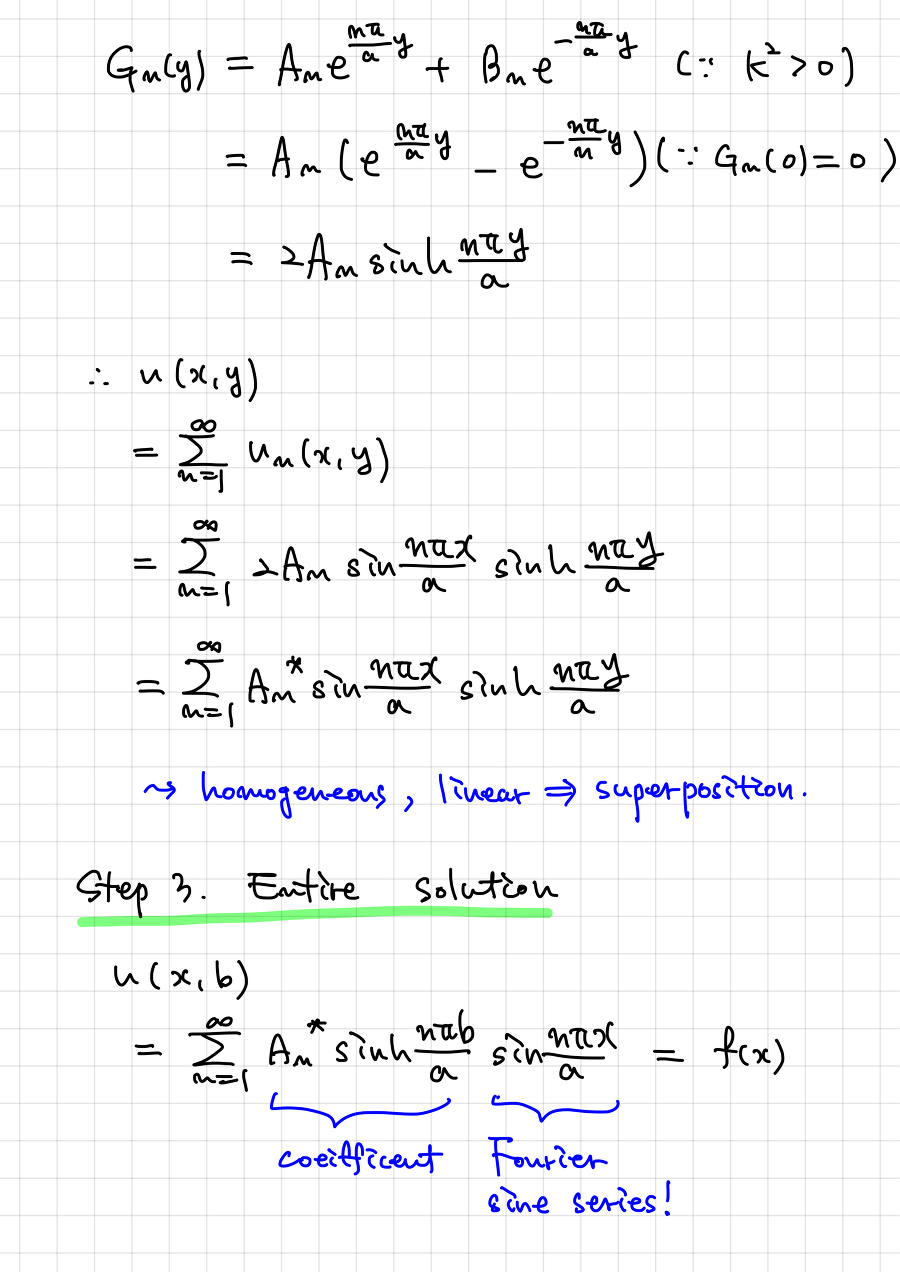 Gₙ(y) = Aₙe^{nπ/a y} + Bₙe^{-nπ/a y} (∵ k² > 0)
= Aₙ(e^{nπ/a y} - e^{-nπ/n y}) (∵ Gₙ(0) = 0)
= 2Aₙ sinh nπy/a
∴ u(x,y)
= ∑_{n=1}^{∞} uₙ(x,y)
= ∑_{n=1}^{∞} 2Aₙ sin nπx/a sinh nπy/a
= ∑_{n=1}^{∞} Aₙ* sin nπx/a sinh nπy/a
⤳ homogeneous, linear ⇒ superposition.
Step 3. Entire solution
u(x,b)
= ∑_{n=1}^{∞} Aₙ* sinh nπb/a sin nπx/a = f(x)
coefficient Fourier
sine series!